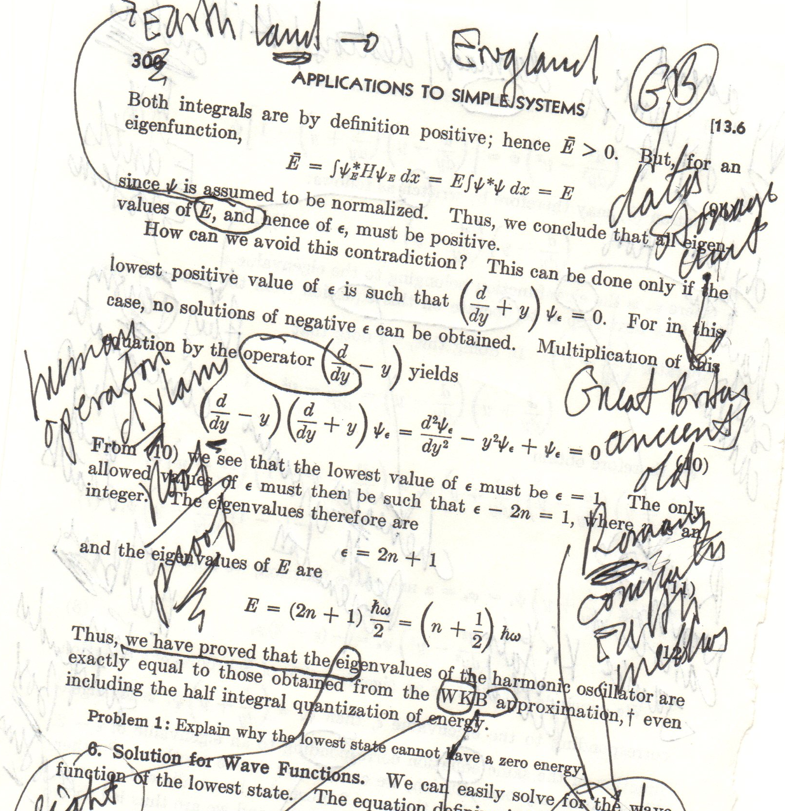 Earth land → England
GB
300
APPLICATIONS TO SIMPLE SYSTEMS
[13.6
Both integrals are by definition positive; hence Ē > 0. But, for an
eigenfunction,
Ē = ∫ψ*_E Hψ_E dx = E∫ψ*ψ dx = E
data
storage
since ψ is assumed to be normalized. Thus, we conclude that all eigen-
values of E, and hence of ε, must be positive.
How can we avoid this contradiction? This can be done only if the
lowest positive value of ε is such that (d/dy + y) ψ_ε = 0. For in this
case, no solutions of negative ε can be obtained. Multiplication of this
equation by the operator (d/dy − y) yields
human
operator
Great Britain
ancient
old
(d/dy − y)(d/dy + y) ψ_ε = d²ψ_ε/dy² − y²ψ_ε + ψ_ε = 0 (10)
From (10) we see that the lowest value of ε must be ε = 1. The only
allowed values of ε must then be such that ε − 2n = 1, where n is an
integer. The eigenvalues therefore are
ε = 2n + 1 (11)
proof
Roman
Earth
and the eigenvalues of E are
E = (2n + 1) ħω/2 = (n + 1/2) ħω
Thus, we have proved that the eigenvalues of the harmonic oscillator are
exactly equal to those obtained from the WKB approximation,† even
including the half integral quantization of energy.
Problem 1: Explain why the lowest state cannot have a zero energy.
6. Solution for Wave Functions. We can easily solve for the wave
function of the lowest state. The equation